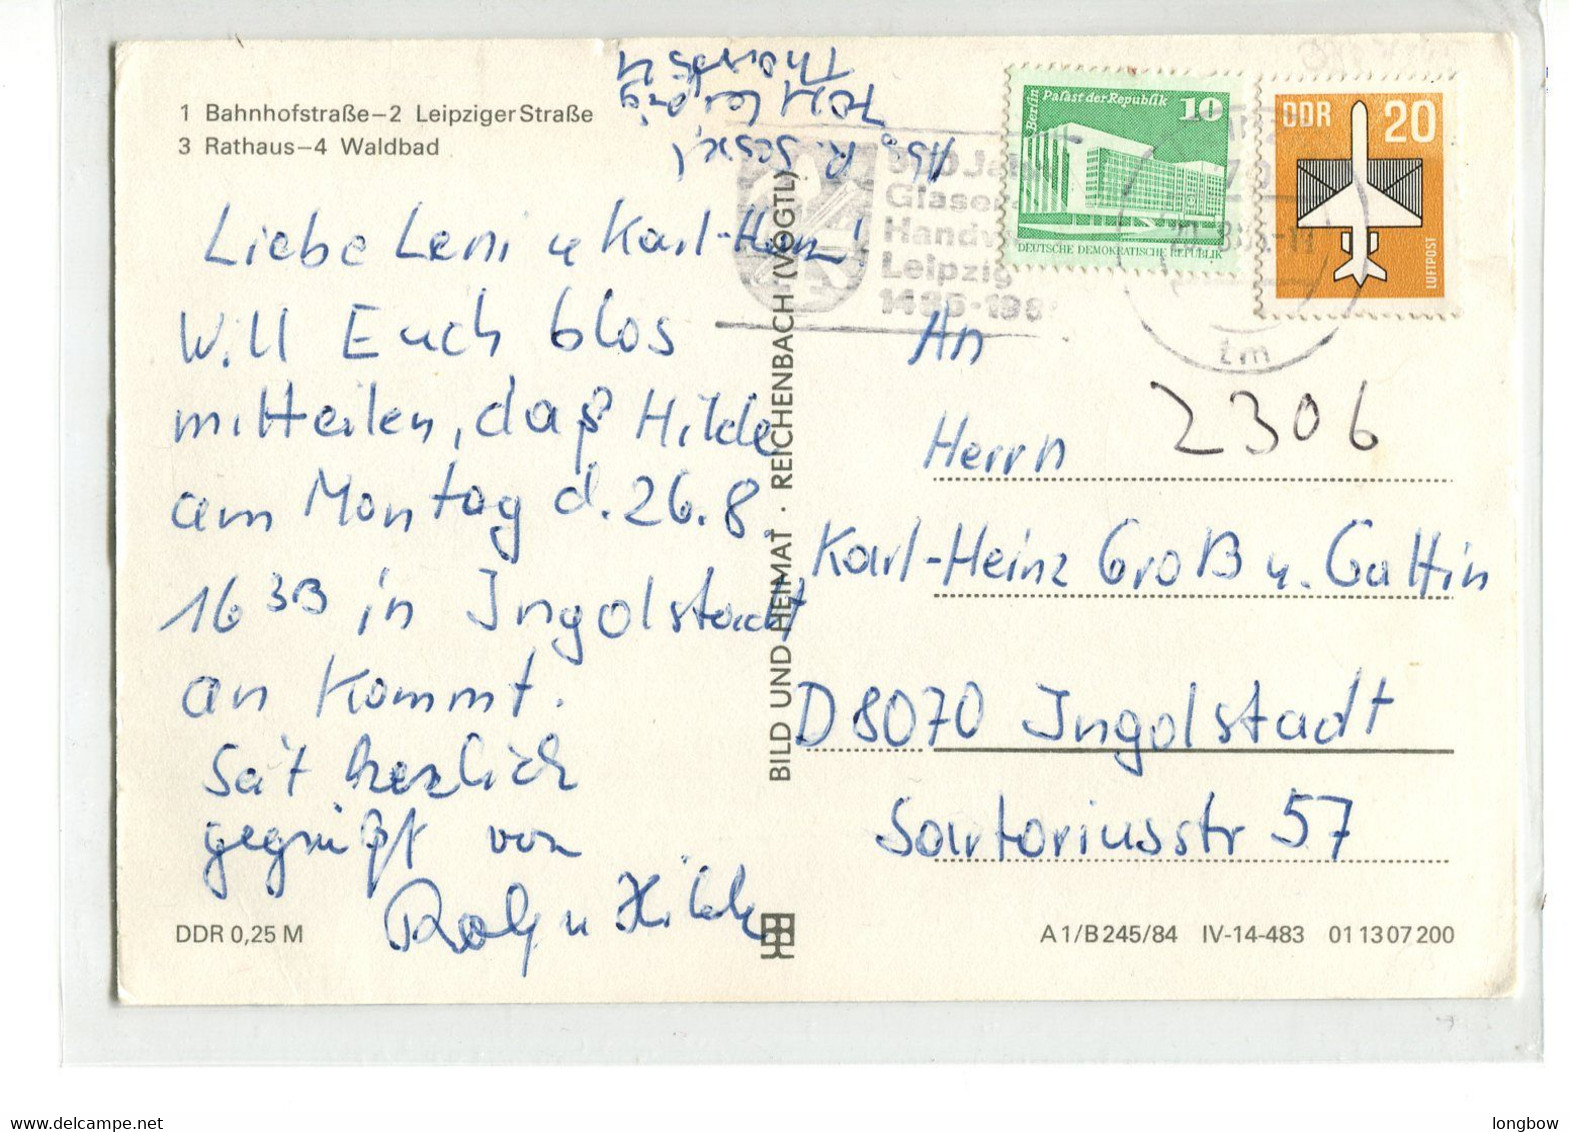 1 Bahnhofstraße–2 Leipziger Straße
3 Rathaus–4 Waldbad
Abs. R.
7021 Leipzig
Liebe Leni u Karl-Heinz!
Will Euch blos
mitteilen, daß Hilde
am Montag d. 26.8.
16 33 in Ingolstadt
an kommt.
Seit herzlich
gegrüßt von
Rolf u Hilde
DDR 0,25 M
BILD UND HEIMAT · REICHENBACH (VOGTL)
Jah
Glaser
Handw
Leipzig
tm
Berlin
Palast der Republik
10
DEUTSCHE DEMOKRATISCHE REPUBLIK
DDR 20
LUFTPOST
An
2306
Herrn
Karl-Heinz Groß u. Gattin
D 8070 Ingolstadt
Sartoriusstr 57
A 1/B 245/84 IV-14-483 01 13 07 200
longbow